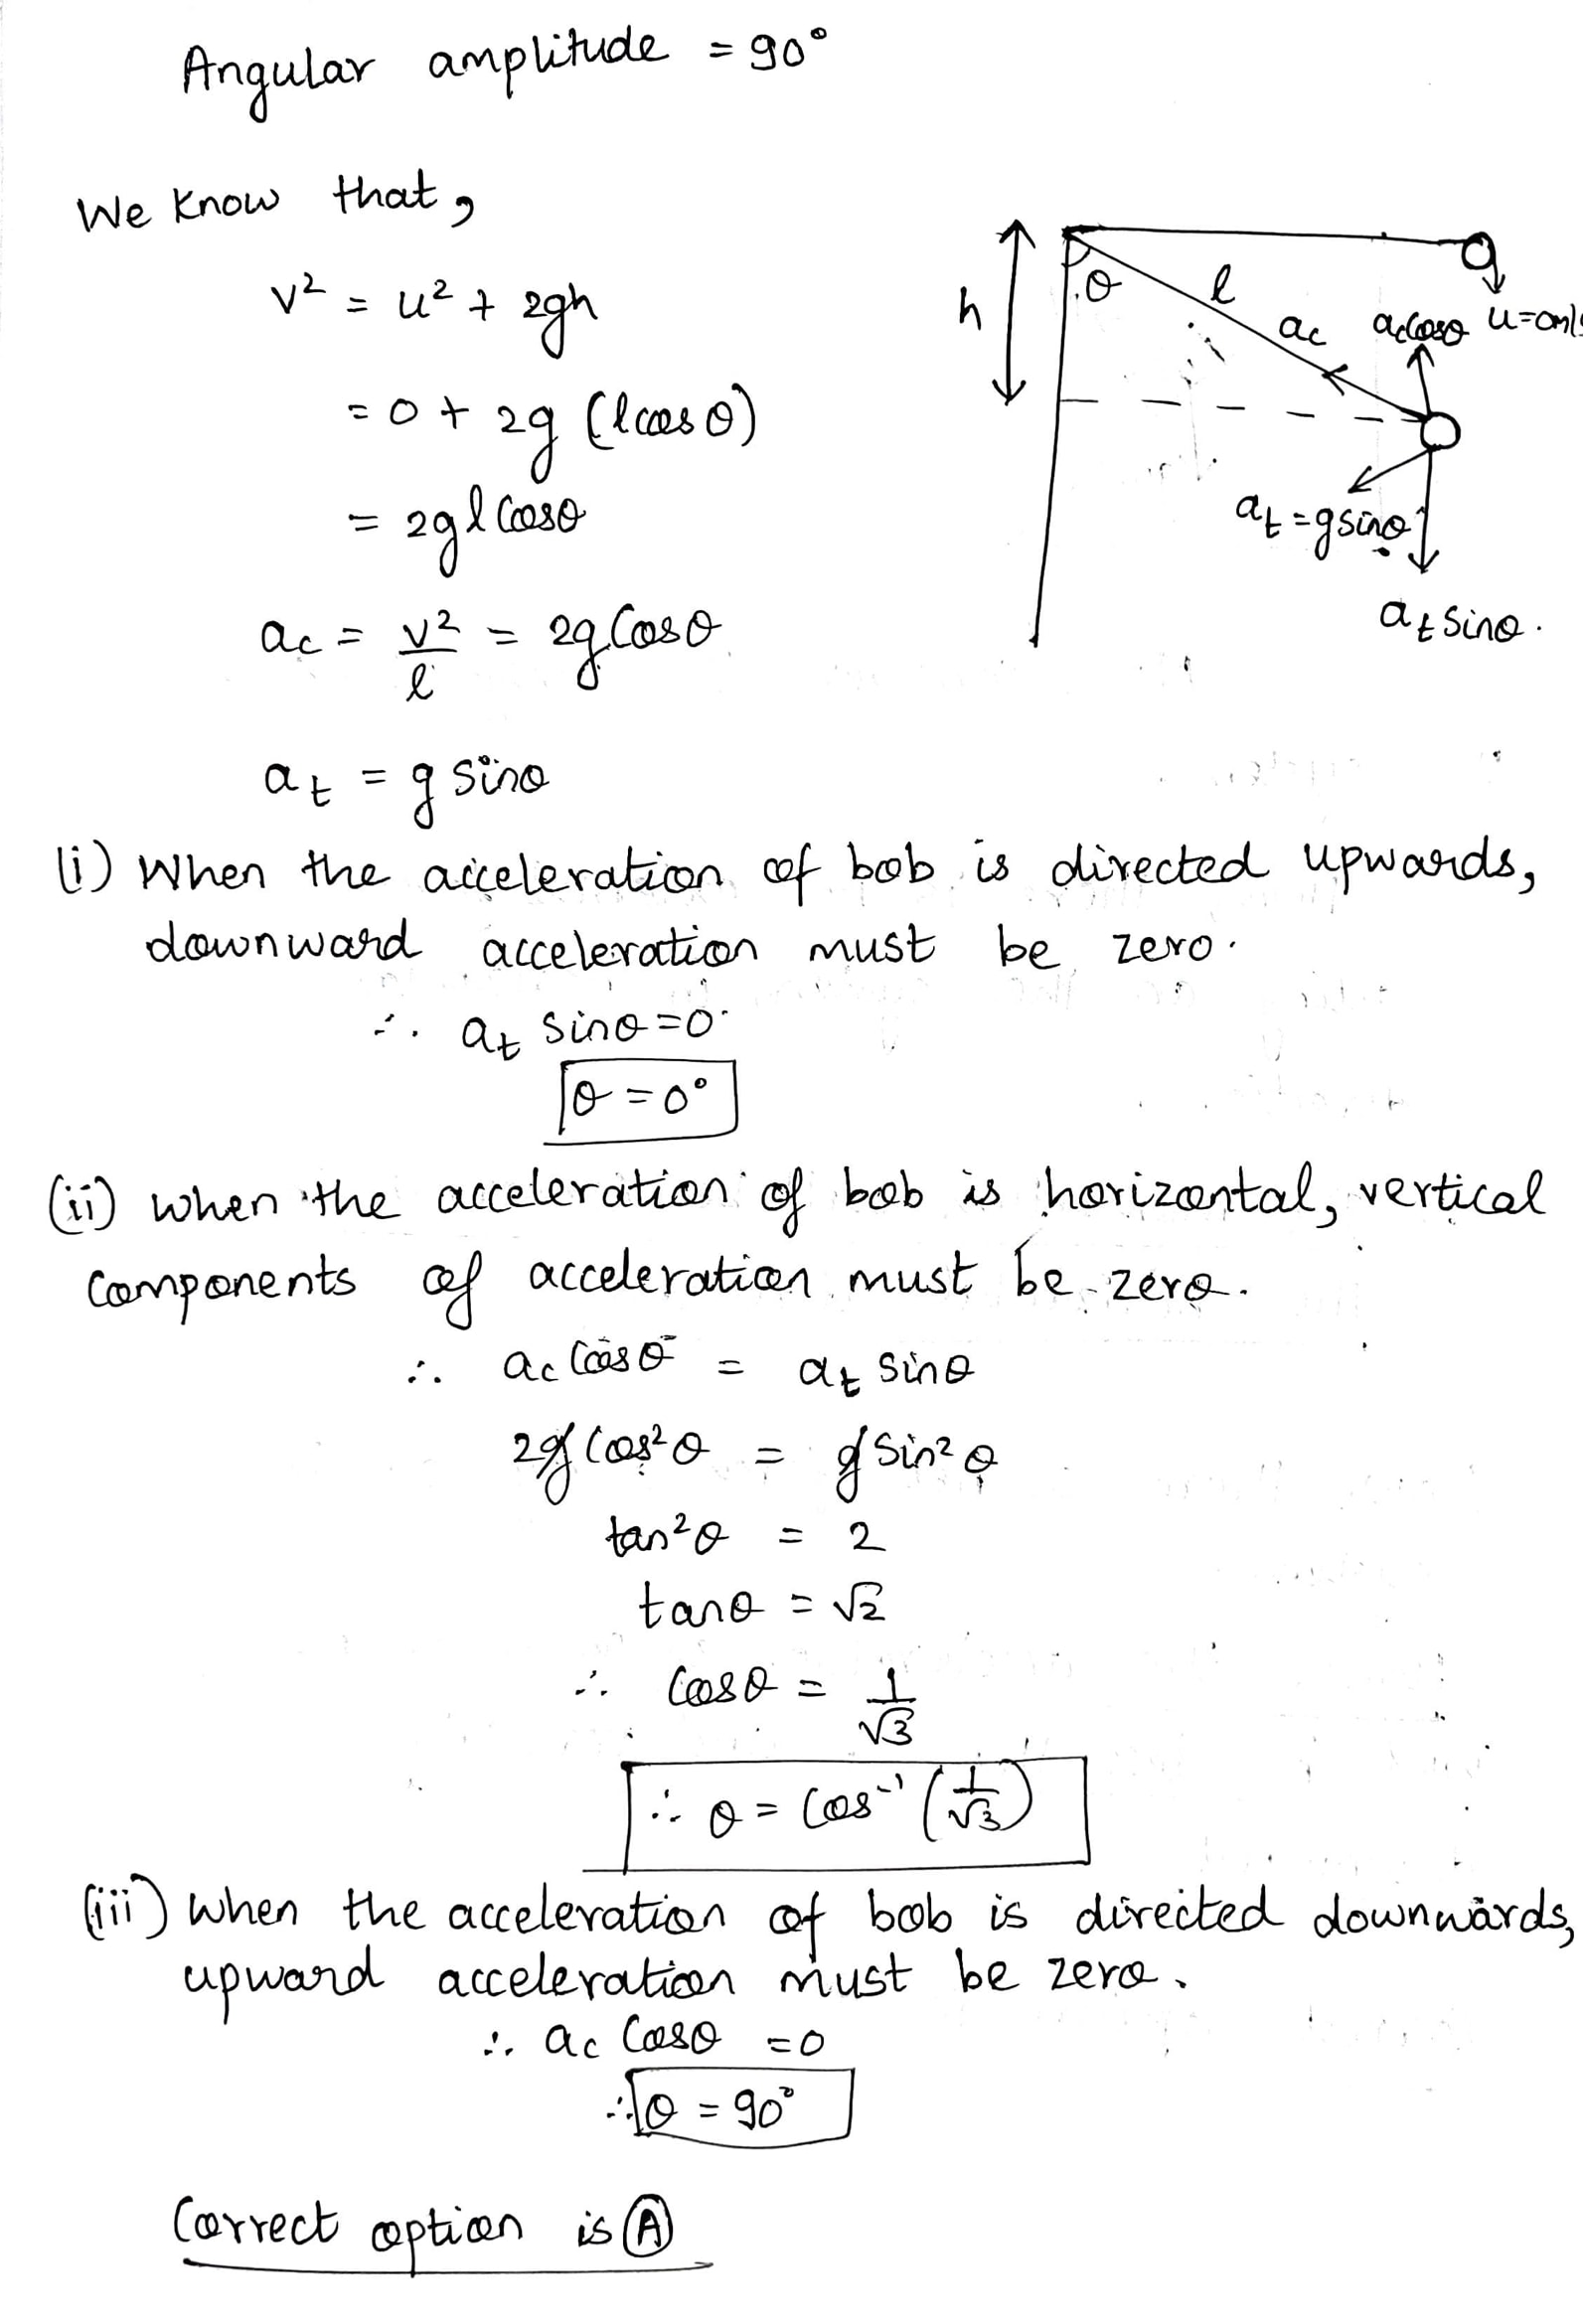 Angular amplitude = 90°
We know that,
v² = u² + 2gh
= 0 + 2g (l cos θ)
= 2gl Cosθ
ac = v²/l = 2g Cosθ
at = g sinθ
h
θ
l
ac
ac Cosθ
u=0m/s
at = g sinθ
at sinθ.
(i) When the acceleration of bob is directed upwards,
downward acceleration must be zero.
∴ at sinθ = 0
θ = 0°
(ii) when the acceleration of bob is horizontal, vertical
Components of acceleration must be zero.
∴ ac Cosθ = at sinθ
2g Cos²θ = g Sin²θ
tan²θ = 2
tanθ = √2
∴ Cosθ = 1/√3
∴ θ = Cos⁻¹ (1/√3)
(iii) when the acceleration of bob is directed downwards,
upward acceleration must be zero.
∴ ac Cosθ = 0
∴ θ = 90°
Correct option is Ⓐ